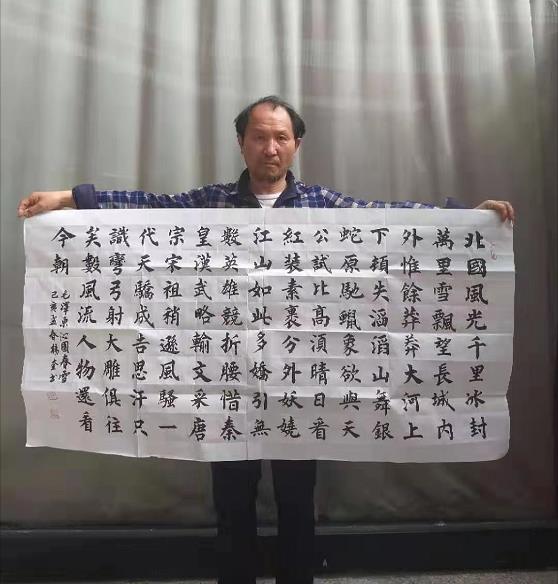 北國風光千里冰封
萬里雪飄望長城內
外惟餘莽莽大河上
下頓失滔滔山舞銀
蛇原馳蠟象欲與天
公試比高須晴日看
紅装素裹分外妖嬈
江山如此多嬌引無
數英雄競折腰惜秦
皇漢武略輸文采唐
宗宋祖稍遜風騷一
代天驕成吉思汗只
識彎弓射大雕俱往
矣數風流人物還看
今朝
毛澤東沁園春雪
己亥孟春楊